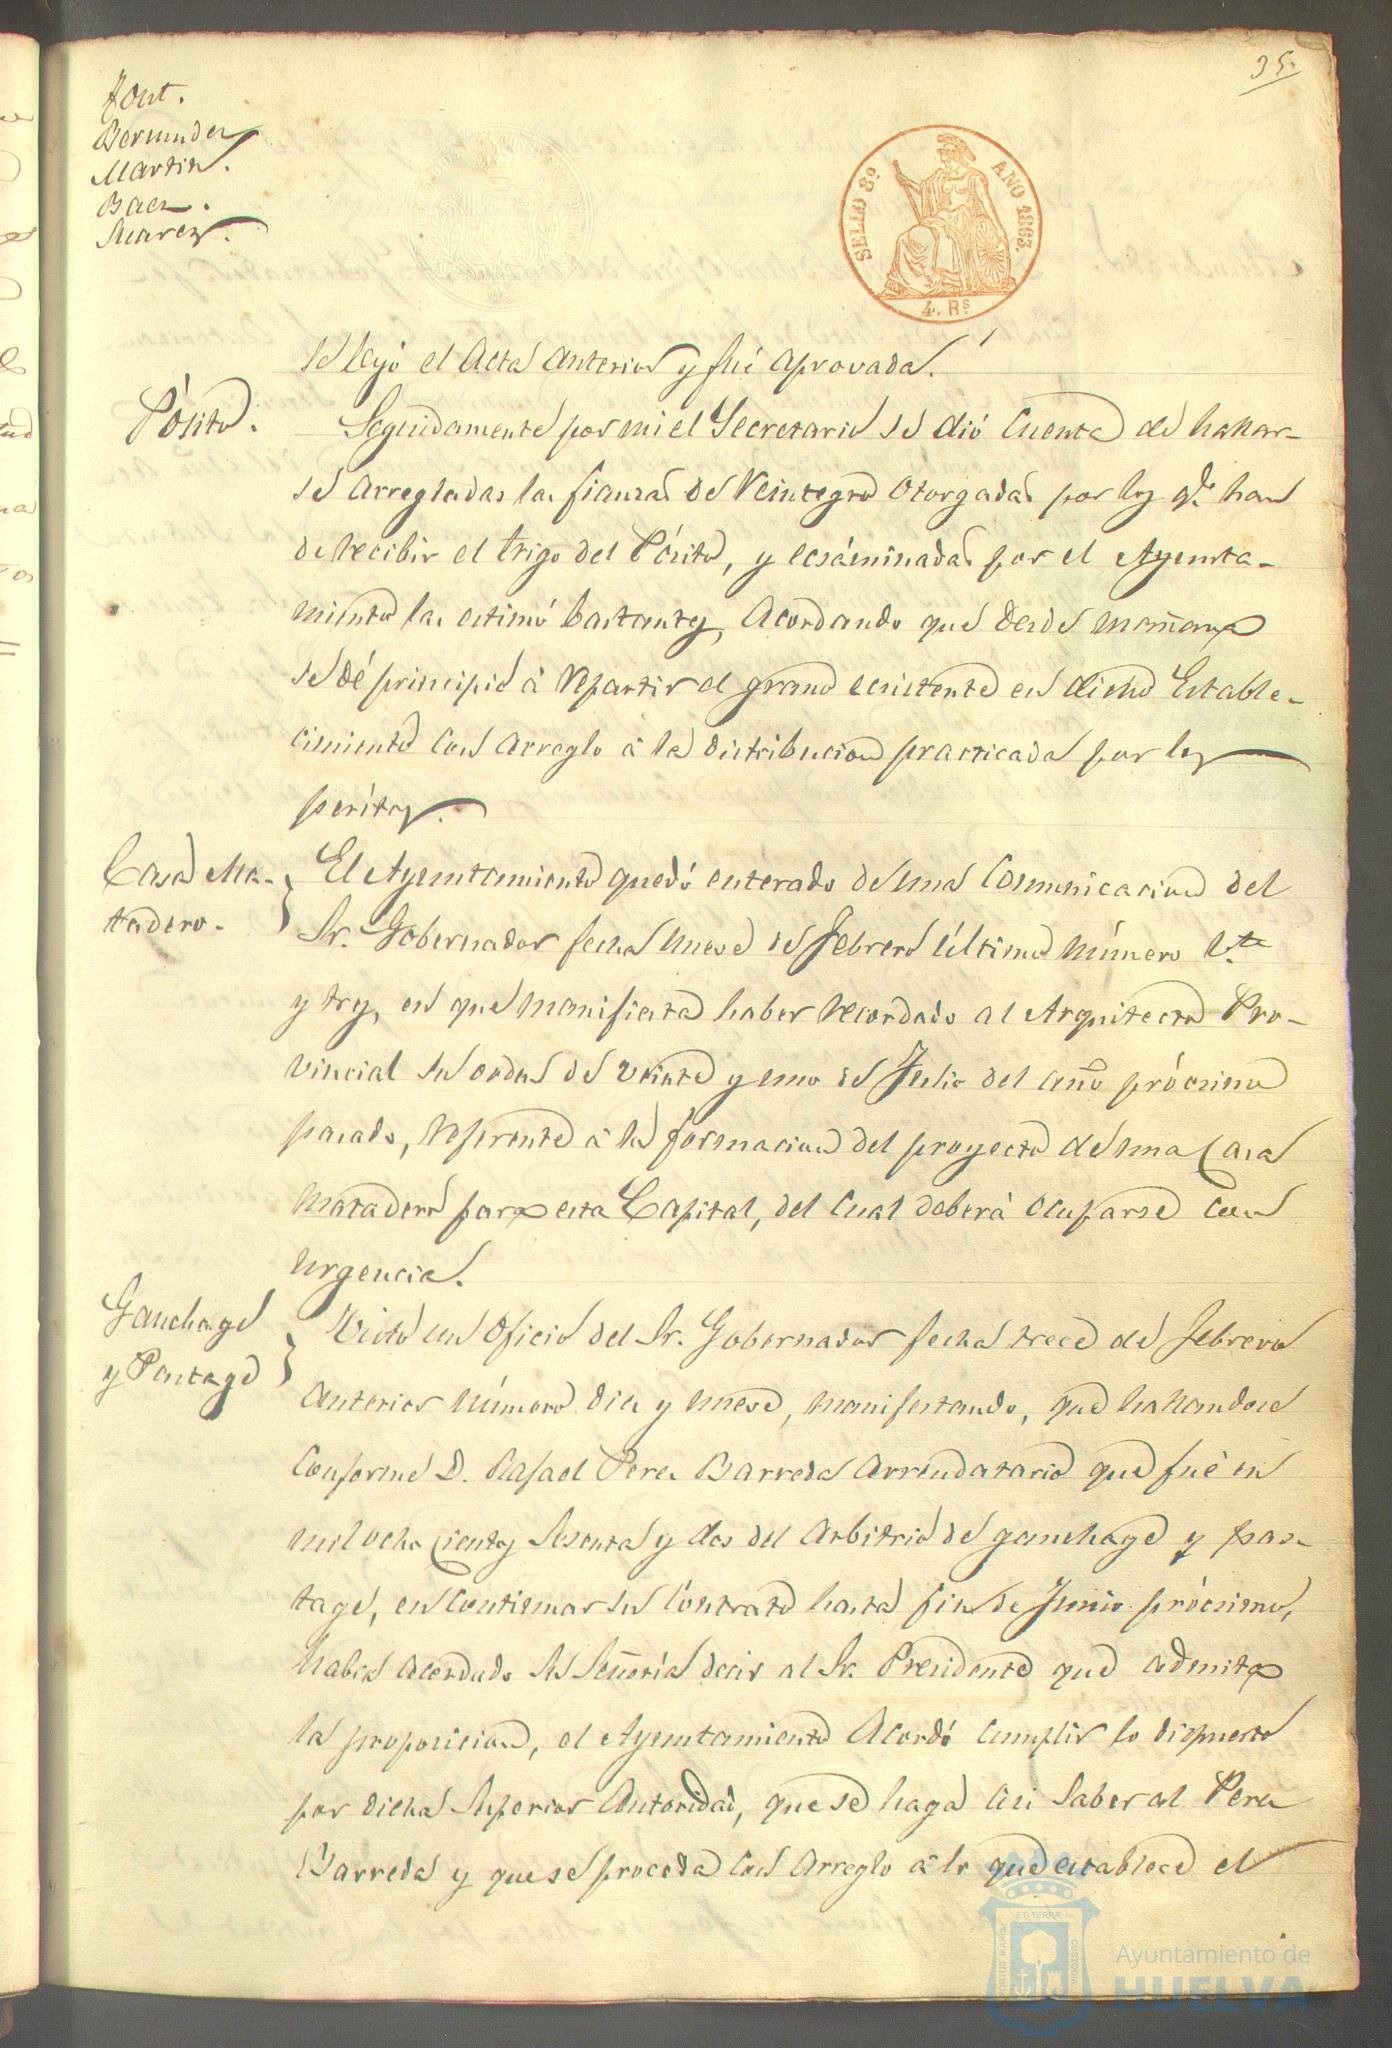 35.
Font.
Bermudez
Martin.
Baez.
Suarez.
SELLO 8º AÑO 1863.
4. Rs
se leyó el Acta anterior y fué aprovada.
Pósito.
Seguidamente por mi el Secretario se dió Cuenta de hallar-
se arregladas las fianzas de Reintegro otorgadas por los q.e han
de recibir el trigo del Pósito, y ecsáminadas por el Ayunta-
miento las estimó bastantes, acordando que desde mañana
se dé principio á repartir el grano ecsistente en dicho Estable-
cimiento con arreglo á la distribucion practicada por los
peritos.
Casa Ma-
tadero.
El Ayuntamiento quedó enterado de una Comunicacion del
Sr. Gobernador fecha nueve de Febrero último número
y tres, en que manifiesta haber recordado al Arquitecto Pro-
vincial su orden de veinte y uno de Julio del año prócsimo
pasado, referente á la formacion del proyecto de una Casa
matadero para esta Capital, del cual deberá ocuparse con
urgencia.
Ganchage
y Pastage
Visto un oficio del Sr. Gobernador fecha trece de Febrero
anterior número diez y nueve, manifestando, que hallandose
conforme D. Rafael Perez Barreda arrendatario que fué en
mil ocho cientos sesenta y dos del arbitrio de ganchage y pas-
tage, en continuar su contrato hasta fin de Junio prócsimo,
habia acordado Su Señoría decir al Sr. Presidente que admita
la proposicion, el Ayuntamiento acordó cumplir lo dispuesto
por dicha Superior Autoridad, que se haga asi saber al Perez
Barreda y que se proceda con arreglo á lo que establece el
PORTUS MARIS ET TERRÆ CUSTODIA
Ayuntamiento de
HUELVA